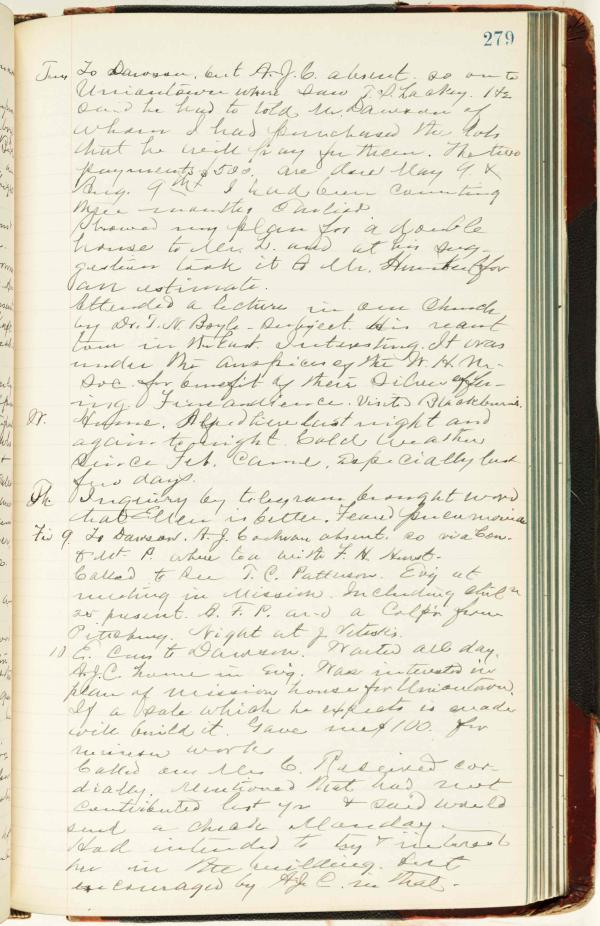 279
Tues To Dawson, but A. J. C. absent. so on to
Uniontown where saw I. L. Lackey.
said he had to told Mr. Dawson of
whom I had purchased the lots
that he will pay for them. The two
payments $500. are due May 9 &
Aug. 9th I had been counting
three months earlier
Showed my plan for a double
house to Mr. L. and at his sug-
gestion took it to Mr. for
an estimate.
Attended a lecture in our Church
by Dr. T. N. Boyle - subject. His recent
tour in the East. Interesting. It was
under the auspices of the W. H. M.
Soc. for benefit of their silver offer-
ing. Fine audience. Visited Blackburns.
W. Home. Slept here last night and
again tonight. Cold weather
since Feb. came, especially last
few days.
Th Inquiry by telegram brought word
that Ellen is better. Feared pneumonia
Fri 9. To Dawson. A. J. Cochran absent. so via Con.
to Mt. P. where tea with F. H. Hurst.
Called to see T. C. Patterson. Ev'g at
meeting in Mission. Including
25 present. B. F. P. and a Colp'r from
Pittsburg. Night at J.
10 E. Cars to Dawson. Waited all day.
A.J.C. home in ev'g. Was interested in
plan of mission house for Uniontown.
If a sale which he expects is made
will build it. Gave me $100. for
mission work
Called on Mrs C. Received cor-
dially. Mentioned that had not
contributed last yr & said would
send a check Monday
Had intended to try & interest
her in the building. But
encouraged by A.J.C. in that.